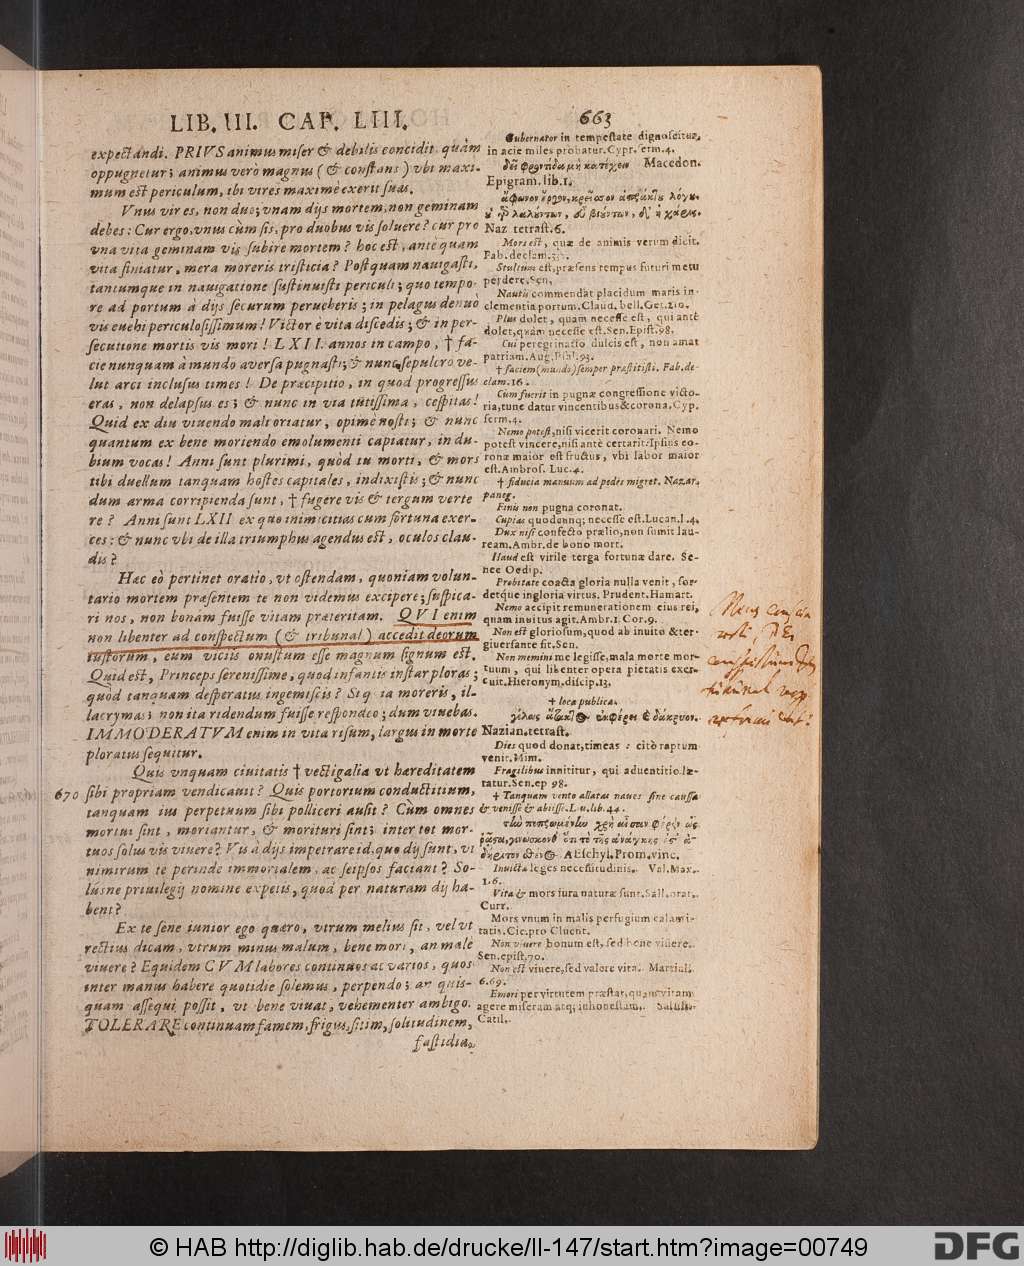 LIB. III. CAP. LIII.
663
expectandi. PRIVS animus miser & debilis concidit, quàm
oppugnetur; animus verò magnus (& constans) vbi maxi-
mum est periculum, ibi vires maximè exerit suas.
Vnus vir es, non duo; vnam dijs mortem, non geminam
debes: Cur ergo, vnus cùm sis, pro duobus vis soluere? cur pro
vna vita geminam vis subire mortem? hoc est, antè quam
vita finiatur, mera moreris tristicia? Postquam nauigasti,
tantumque in nauigatione sustinuisti periculi; quo tempo-
re ad portum à dijs securum perueheris; in pelagus denuò
vis euehi periculosissimum! Victor è vita discedis; & in per-
secutione mortis vis mori! LXII. annos in campo, † fa-
cie nunquam à mundo aversa pugnasti; & nunc sepulcro ve-
lut arci inclusus times! De præcipitio, in quod progressus
eras, non delapsus es; & nunc in via tutissima, cespitas!
Quid ex diu viuendo mali oriatur, opimè nosti; & nunc
quantum ex bene moriendo emolumenti capiatur, in du-
bium vocas! Anni sunt plurimi, quòd tu morti, & mors
tibi duellum tanquam hostes capitales, indixistis; & nunc
dum arma corripienda sunt, † fugere vis & tergum verte
re? Anni sunt LXII ex quo inimicitias cum fortuna exer-
ces: & nunc vbi de illa triumphus agendus est, oculos clau-
dis?
Hac eò pertinet oratio, vt ostendam, quoniam volun-
tario mortem præsentem te non videmus excipere; suspica-
ri nos, non bonam fuisse vitam præteritam. QVI enim
non libenter ad conspectum (& tribunal) accedit deorum
iustorum, eum viciis onustum esse magnum signum est.
Quid est, Princeps serenissime, quod infantis instar ploras;
quòd tanquam desperatus ingemiscis? Si quia moreris, il-
lacrymas; non ita ridendum fuisse respondeo; dum viuebas.
IMMODERATVM enim in vita risum, largus in morte
ploratus sequitur.
Quis vnquam ciuitatis † vectigalia vt hæreditatem
670 sibi propriam vendicauit? Quis portorium conductitium,
tanquam ius perpetuum sibi polliceri ausit? Cùm omnes
mortui sint, moriantur, & morituri sint; inter tot mor-
tuos solus vis viuere? Vis à dijs impetrare id, quo dij sunt, vt
nimirum te perinde immortalem, ac seipsos faciant? So-
lúsne priuilegij nomine expetis, quod per naturam dij ha-
bent?
Ex te sene iunior ego quæro, vtrum melius sit, vel vt
rectius dicam, vtrum minus malum, bene mori, an malè
viuere? Equidem CVM labores continuos ac varios, quos
inter manus habere quotidie solemus, perpendo; an quis-
quam assequi possit, vt bene viuat, vehementer ambigo.
TOLERARE continuam famem, frigus, sitim, solitudinem,
fastidia,
Gubernator in tempestate dignoscitur,
in acie miles probatur. Cypr. serm. 4.
Macedon.
Epigram. lib. 1.
Naz tetrast. 6.
Mors est, quæ de animis verum dicit.
Fab. declam.
Stultum est, præsens tempus futuri metu
perdere. Sen.
Nautis commendat placidum maris in-
clementia portum. Claud. bell. Get. 210.
Plus dolet, quam necesse est, qui antè
dolet, quàm necesse est. Sen. Epist. 98.
Cui peregrinatio dulcis est, non amat
patriam. Aug. Psal. 93.
† faciem (mundo) semper præstitisti. Fab. de-
clam. 16.
Cum fuerit in pugnæ congressione victo-
ria, tunc datur vincentibus & corona. Cyp.
serm. 4.
Nemo potest, nisi vicerit coronari. Nemo
potest vincere, nisi antè certarit: Ipsius co-
ronæ maior est fructus, vbi labor maior
est. Ambros. Luc. 4.
† fiducia manuum ad pedes migret. Nazar.
paneg.
Finis non pugna coronat.
Cupias quodcunq; necesse est. Lucan. l. 4.
Dux nisi confecto prælio, non sumit lau-
ream. Ambr. de bono mort.
Haud est virile terga fortunæ dare. Se-
nec Oedip.
Probitate coacta gloria nulla venit, sor-
detque ingloria virtus. Prudent. Hamart.
Nemo accipit remunerationem eius rei,
quam inuitus agit. Ambr. 1. Cor. 9.
Non est gloriosum, quod ab inuito & ter-
giuersante fit. Sen.
Non memini me legisse, mala morte mor-
tuum, qui libenter opera pietatis exer-
cuit. Hieronym. discip. 13.
† loca publica.
Nazian. tetrast.
Dies quod donat, timeas: citò raptum
venit. Mim.
Fragilibus innititur, qui aduentitio læ-
tatur. Sen. ep 98.
† Tanquam vento allatas naues sine caussa
& venisse & abiisse. Liu. lib. 44.
AEschyl. Prom. vinc.
Inuictæ leges necessitudinis. Val. Max.
l. 6.
Vita & mors iura naturæ sunt. Sall. orat.
Curr.
Mors vnum in malis perfugium calami-
tatis. Cic. pro Cluent.
Non viuere bonum est, sed bene viuere.
Sen. epist. 70.
Non est viuere, sed valere vita. Martial.
6. 69.
Emori per virtutem præstat, quam vitam
agere miseram atq; inhonestam. Sallust.
Catil.
© HAB http://diglib.hab.de/drucke/ll-147/start.htm?image=00749
DFG